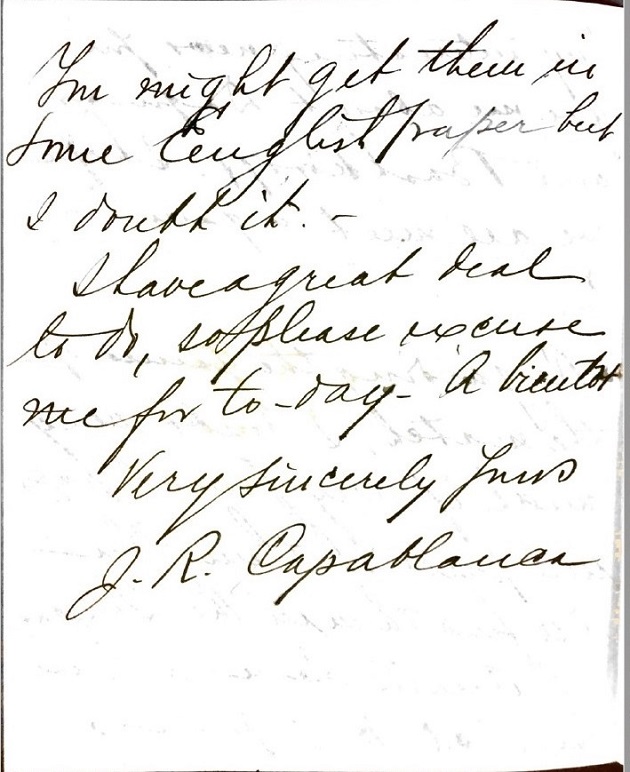 You might get them in
some English paper but
I doubt it. -
I have a great deal
to do, so please excuse
me for to-day - A bientot
Very sincerely yours
J. R. Capablanca